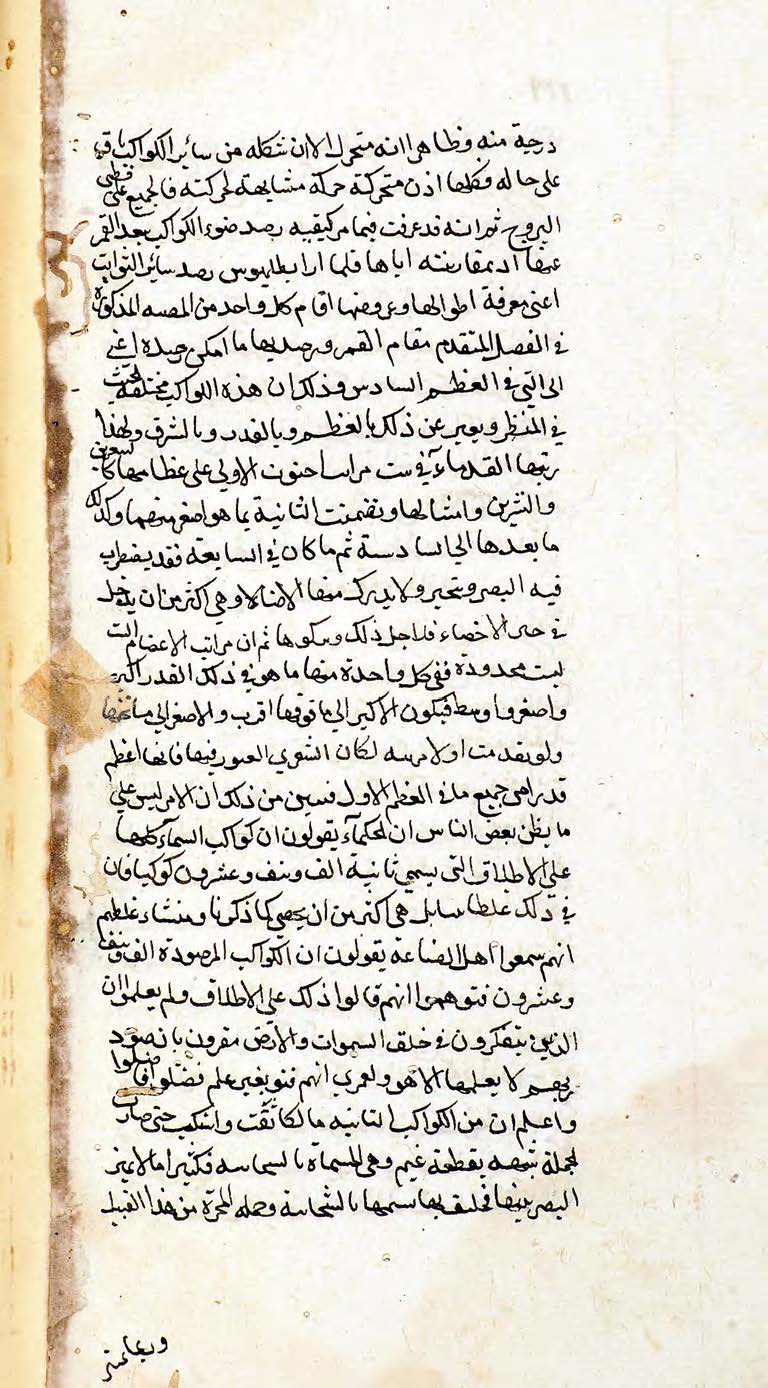 درجة منه وظاهرا انه متحرك الا ان شكله من ساير الكواكب باق
على حاله فكلها اذن متحركة حركة مشابهة لحركته فالجميع على قطبى
البروج ثم انه قد عرفت فيما مر كيفيه رصد ضوء الكواكب بعد القمر
عنها او بمقارنته اياها فلما اراد بطلميوس رصد ساير الثوابت
اعنى معرفة اطوالها وعروضها اقام كل واحد من الخمسه المذكورة
فى الفصل المتقدم مقام القمر ورصد بها ما امكن رصده اعنى
الى التى فى العظم السادس وذلك ان هذه الكواكب مختلفة الجثث
فى المنظر ويعبر عن ذلك بالعظم وبالقدر وبالشرق ولهذا
رتبها القدماء فى ست مراتب الاولى على عظامها كالشعريين
والنسرين وامثالها وتضمنت الثانية بما هو اصغر منهما وكذلك
ما بعدها الى السادسة ثم ما كان فى السابعة فقد يضطرب
فيه البصر ويتحير ولا يدرك منها الا خيالا وهى اكثر من ان يدخل
فى حد الاحصاء فلاجل ذلك تركوها ثم ان مراتب الاعظام الست
ليست محدودة ففى كل واحدة منها ما هو فى ذلك القدر اكبر
واصغر واوسط فيكون الاكبر الى ما فوقها اقرب والاصغر الى ما تحتها
ولو تقدمت اولا مرتبه لكان الشعرى العبور فيها فانها اعظم
قدرا من جميع ما فى العظم الاول فتبين من ذلك ان الامر ليس على
ما يظن بعض الناس ان الحكماء يقولون ان كواكب السماء كلها
على الاطلاق التى يسمى ثابتة الف ونيف وعشرون كوكبا فان
فى ذلك غلطا بل هى اكثر من ان يحصى كما ذكرنا ومنشاء غلطهم
انهم سمعوا اهل الصناعة يقولون ان الكواكب المرصودة الف ونيف
وعشرون فتوهموا انهم قالوا ذلك على الاطلاق ولم يعلموا ان
الذين يتفكرون فى خلق السموات والارض مقرون بان جنود
ربهم لا يعلمها الا هو ولعمرى انهم افتوا بغير علم فضلوا واضلوا
واعلم ان من الكواكب الثابته ما تكاثفت واشتبكت حتى صارت
لجملة شبيهه بقطعة غيم وهى المسماة بالسحابيه فكثيرا ما لا يميز
البصر بينها فيليق بها تسميتها بالسحابية وجمله المجرة من هذا القبيل